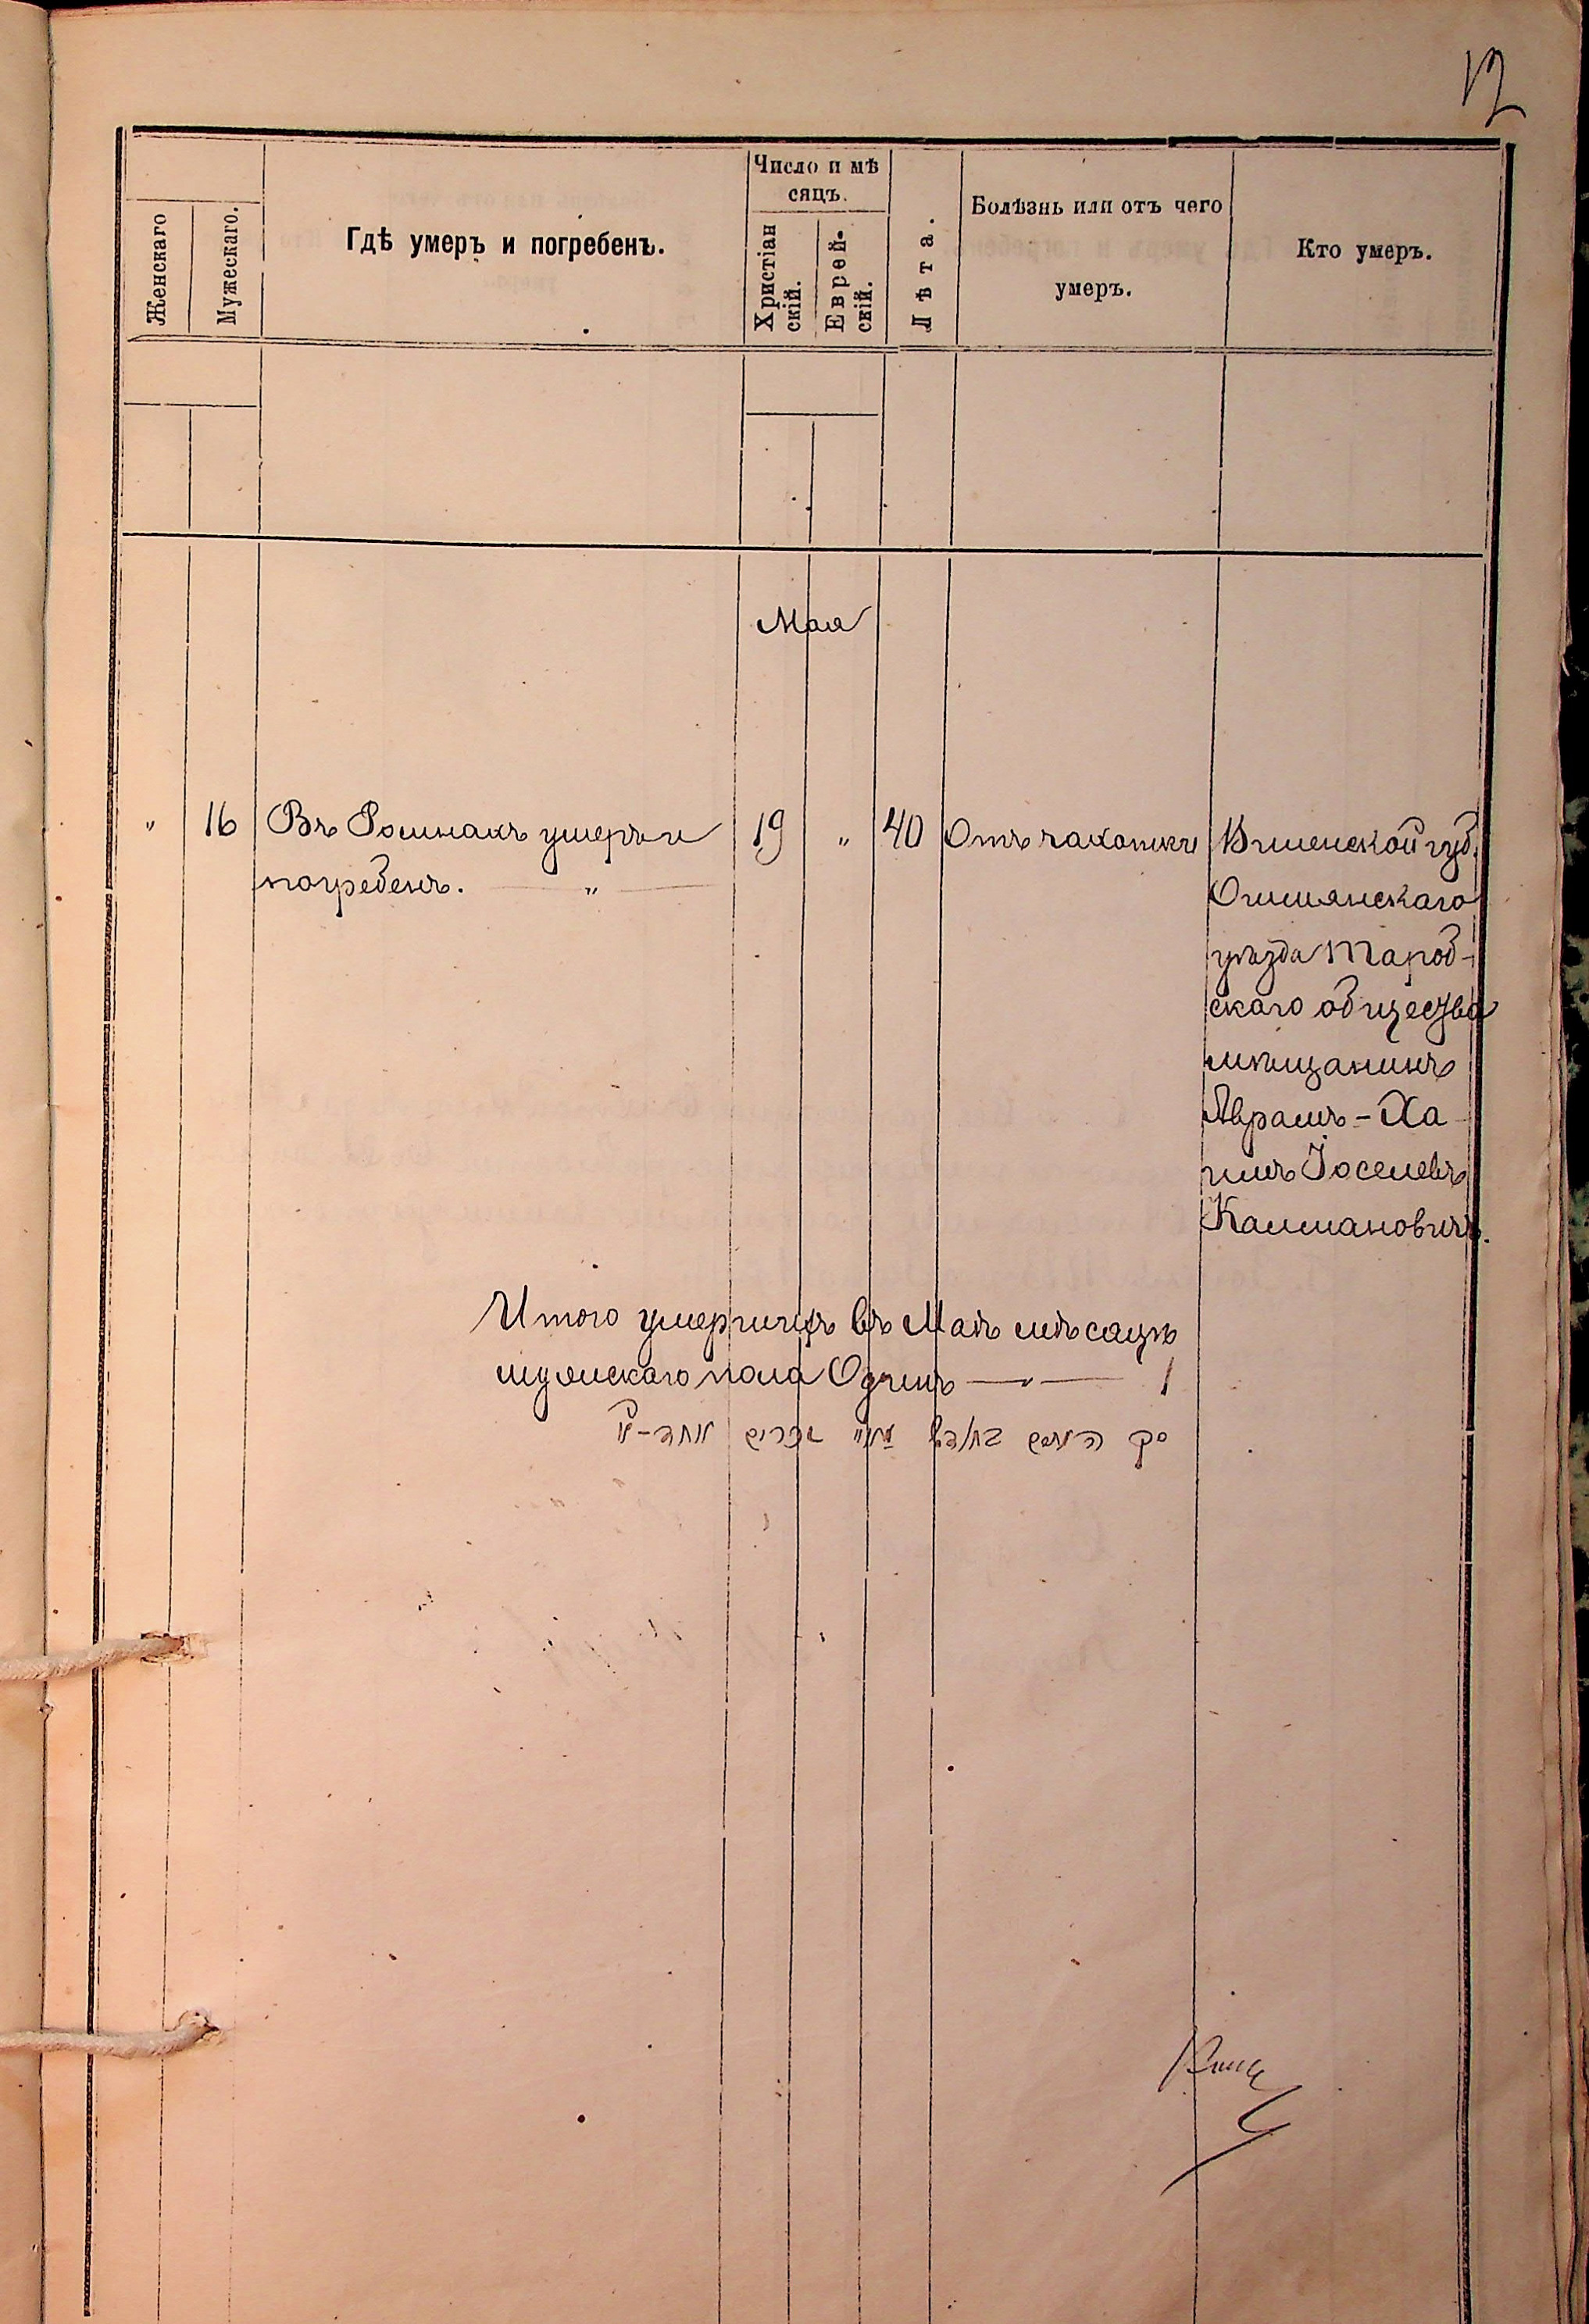 12
Женскаго
Мужескаго.
Гдѣ умеръ и погребенъ.
Число и мѣ
сяцъ.
Христіан
скій.
Еврей-
скій.
Лѣта.
Болѣзнь или отъ чего
умеръ.
Кто умеръ.
Мая
" 16 Въ Ромнахъ умеръ и 19 " 40 Отъ чахотки Виленской губ.
погребенъ. — " — Ошмянскаго
уѣзда
скаго общества
мѣщанинъ
Абрамъ-Ха
имъ Іоселевъ
Калмановичъ.
Итого умершихъ въ Маѣ мѣсяцѣ
мужескаго пола Одинъ — " — 1